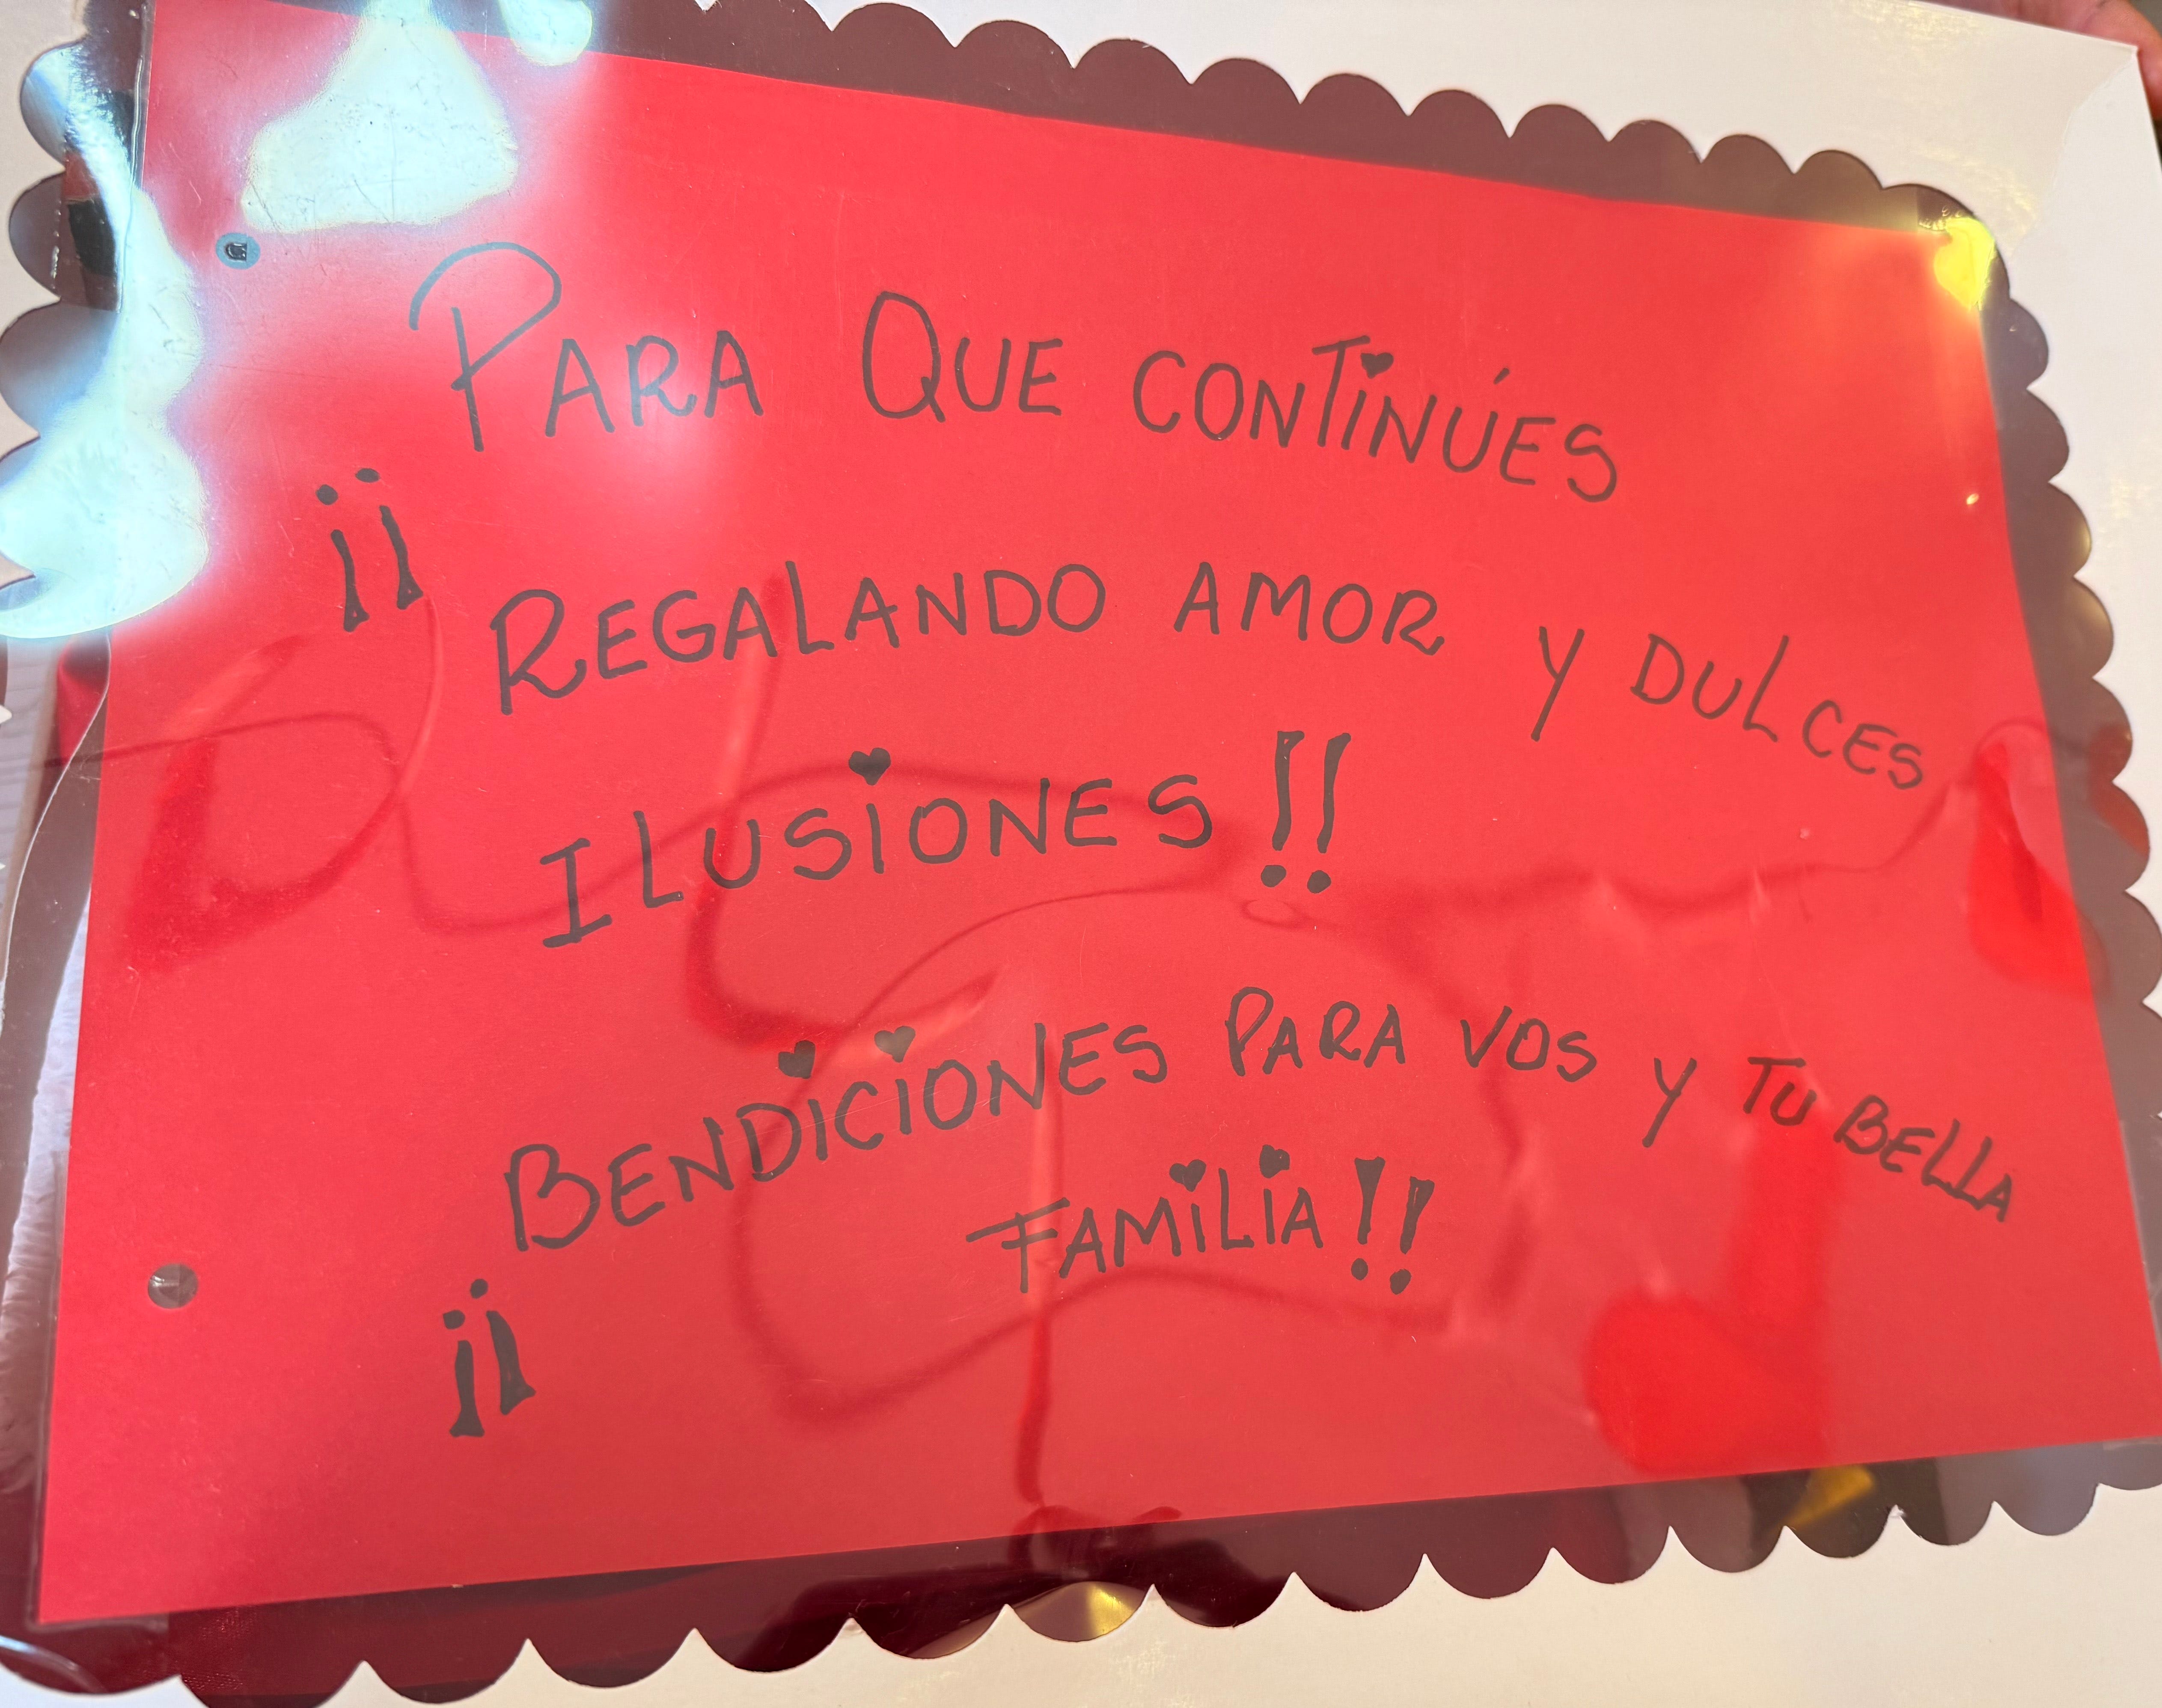 PARA QUE CONTINÚES
¡¡ REGALANDO AMOR Y DULCES
ILUSIONES!!
¡¡ BENDICIONES PARA VOS Y TU BELLA
FAMILIA!!